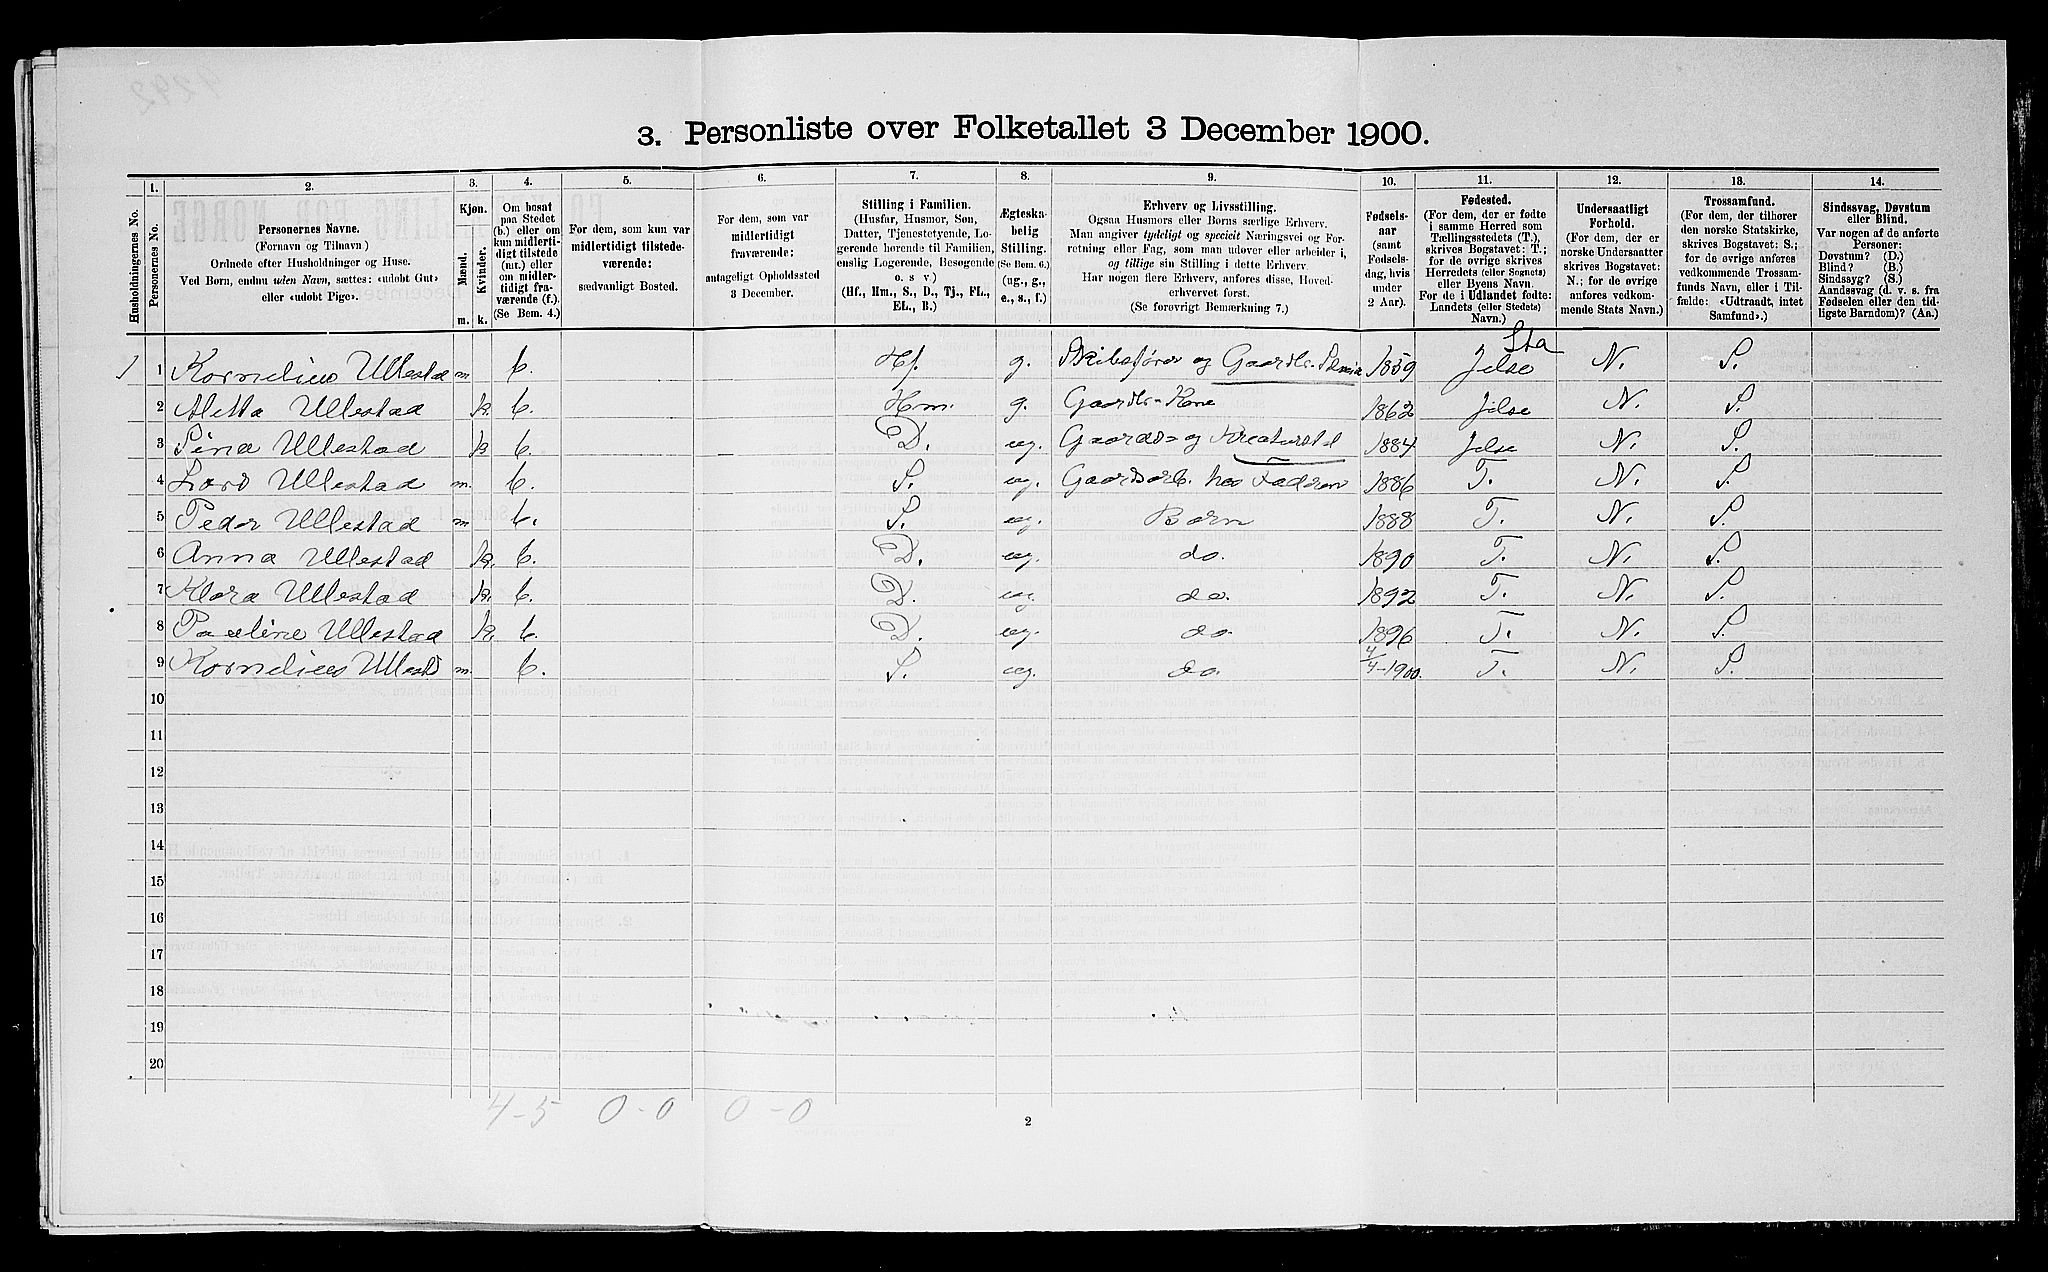 3. Personliste over Folketallet 3 December 1900.
1. 2. 3. 4. 5. 6. 7. 8. 9. 10. 11. 12. 13. 14.
Husholdningernes No.
Personernes No.
Personernes Navne.
(Fornavn og Tilnavn)
Ordnede efter Husholdninger og Huse.
Ved Børn, endnu uden Navn, sættes: «udøbt Gut»
eller «udøbt Pige».
Kjøn.
Mænd. Kvinder.
m. k.
Om bosat
paa Stedet
(b.) eller om
kun midlerti-
digt tilstede
(mt.) eller
om midler-
tidigt fra-
værende (f.).
(Se Bem. 4.)
For dem, som kun var
midlertidigt tilstede-
værende:
sædvanligt Bosted.
For dem, som var
midlertidigt
fraværende:
antageligt Opholdssted
3 December.
Stilling i Familien.
(Husfar, Husmor, Søn,
Datter, Tjenestetyende, Lo-
gerende hørende til Familien,
enslig Logerende, Besøgende
o. s v.)
(Hf., Hm., S., D., Tj., FL.,
EL., B.)
Ægteska-
belig
Stilling.
(Se Bem. 6.)
(ug., g.,
e., s., f.)
Erhverv og Livsstilling.
Ogsaa Husmors eller Børns særlige Erhverv.
Man angiver tydeligt og specielt Næringsvei og For-
retning eller Fag, som man udøver eller arbeider i,
og tillige sin Stilling i dette Erhverv.
Har nogen flere Erhverv, anføres disse, Hoved-
erhvervet først.
(Se forøvrigt Bemærkning 7.)
Fødsels-
aar
(samt
Fødsels-
dag, hvis
under
2 Aar).
Fødested.
(For dem, der er fødte
i samme Herred som
Tællingsstedets (T.),
skrives Bogstavet: T.;
for de øvrige skrives
Herredets (eller Sognets)
eller Byens Navn.
For de i Udlandet fødte:
Landets (eller Stedets)
Navn.)
Undersaatligt
Forhold.
(For dem, der er
norske Undersaatter
skrives Bogstavet:
N.; for de øvrige
anføres vedkom-
mende Stats Navn.)
Trossamfund.
(For dem, der tilhører
den norske Statskirke,
skrives Bogstavet: S.;
for de øvrige anføres
vedkommende Trossam-
funds Navn, eller i Til-
fælde: «Udtraadt, intet
Samfund».)
Sindssvag, Døvstum
eller Blind.
Var nogen af de anførte
Personer:
Døvstum? (D.)
Blind? (B.)
Sindssyg? (S.)
Aandssvag (d. v. s. fra
Fødselen eller den tid-
ligste Barndom)? (Aa.)
Sta
1 1 Kornelius Ullestad m b. Hf. g. Skibsfører og Gaardbr. 1859 Jelse N. S.
2 Aletta Ullestad k. b. Hm. g. Gaardbr. Kone 1862 Jelse N. S.
3 Sina Ullestad k b. D. ug. Gaards- og Kreaturstel 1884 Jelse N. S.
4 Lars Ullestad m. b. S. ug. Gaardsarb. hos Faderen 1886 T. N. S.
5 Peder Ullestad m b. S. ug. Barn 1888 T. N. S.
6 Anna Ullestad k. b. D. ug. do. 1890 T. N. S.
7 Klara Ullestad k. b. D. ug. do. 1892 T. N. S.
8 Pauline Ullestad k. b. D. ug. do. 1896 T. N. S.
9 Kornelius Ullestd m. b. S. ug. do. 4/4-1900. T. N. S.
10
11
12
13
14
15
16
17
18
19
20
4-5 0-0 0-0
2